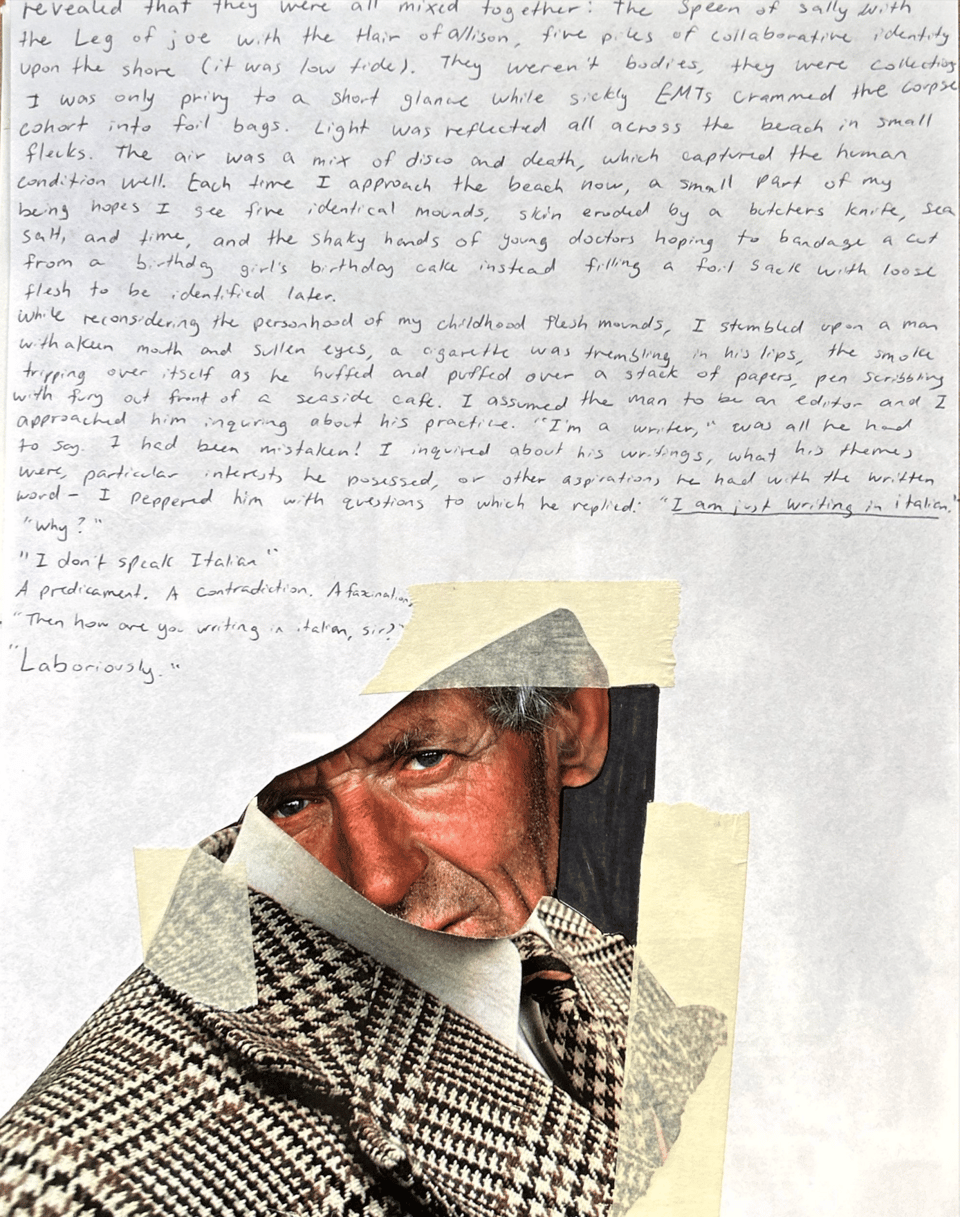 revealed that they were all mixed together: The Speen of Sally with
the Leg of joe with the Hair of Allison, five piles of collaborative identity
upon the shore (it was low tide). They weren't bodies, they were collecting
I was only privy to a short glance while sickly EMTs crammed the corpse
cohort into foil bags. Light was reflected all across the beach in small
flecks. The air was a mix of disco and death, which captured the human
condition well. Each time I approach the beach now, a small part of my
being hopes I see five identical mounds, skin eroded by a butchers knife, sea
salt, and time, and the shaky hands of young doctors hoping to bandage a cut
from a birthday girl's birthday cake instead filling a foil sack with loose
flesh to be identified later.
While reconsidering the personhood of my childhood flesh mounds, I stumbled upon a man
with a keen mouth and sullen eyes, a cigarette was trembling in his lips, the smoke
tripping over itself as he huffed and puffed over a stack of papers, pen scribbling
with fury out front of a seaside cafe. I assumed the man to be an editor and I
approached him inquring about his practice. "I'm a writer," was all he had
to say. I had been mistaken! I inquired about his writings, what his themes
were, particular interests he posessed, or other aspirations he had with the written
word - I peppered him with questions to which he replied: "I am just writing in italian."
"Why?"
"I don't speak Italian"
A predicament. A contradiction. A faxination,
"Then how are you writing in italian, sir?"
"Laboriously."